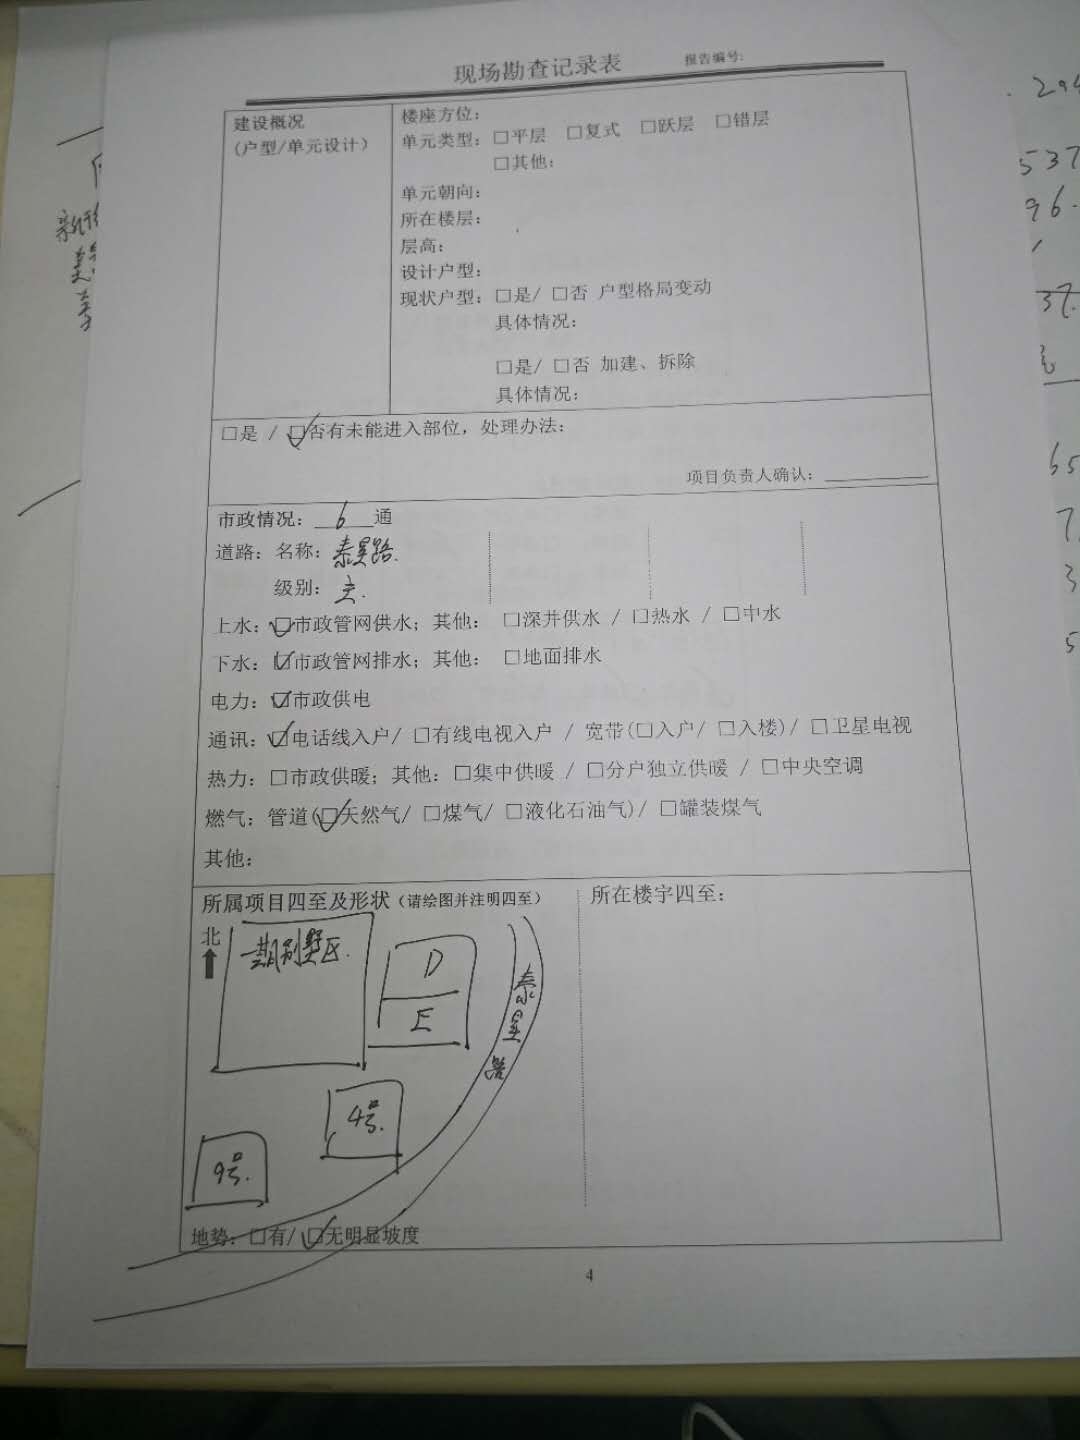 现场勘查记录表 报告编号:
建设概况
(户型/单元设计)
楼座方位:
单元类型: □平层 □复式 □跃层 □错层
□其他:
单元朝向:
所在楼层:
层高:
设计户型:
现状户型: □是/ □否 户型格局变动
具体情况:
□是/ □否 加建、拆除
具体情况:
□是 / ☑否有未能进入部位, 处理办法:
项目负责人确认:
市政情况: 6 通
道路: 名称: 泰星路.
级别: 主.
上水: ☑市政管网供水; 其他: □深井供水 / □热水 / □中水
下水: ☑市政管网排水; 其他: □地面排水
电力: ☑市政供电
通讯: ☑电话线入户/ □有线电视入户 / 宽带(□入户/ □入楼)/ □卫星电视
热力: □市政供暖; 其他: □集中供暖 / □分户独立供暖 / □中央空调
燃气: 管道(☑天然气/ □煤气/ □液化石油气)/ □罐装煤气
其他:
所属项目四至及形状(请绘图并注明四至)
所在楼宇四至:
北
一期别墅区.
D
E
泰星路
4号.
9号.
地势: □有/ ☑无明显坡度
4
294
537
96.
37.
65
7.
3
5